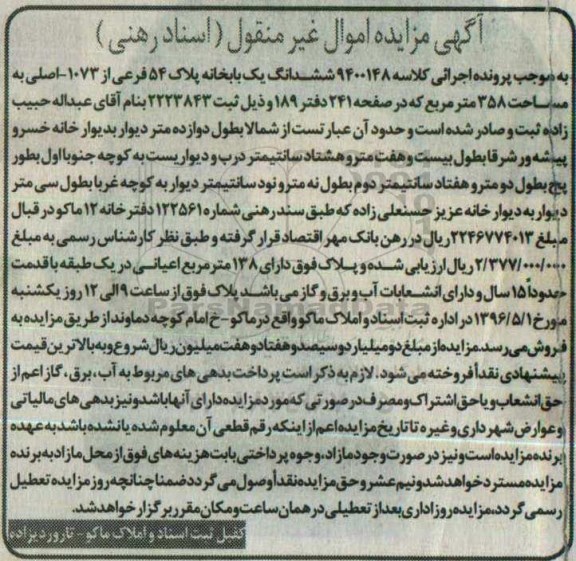 آگهی مزایده اموال غیر منقول (اسناد رهنی)
به موجب پرونده اجرائی کلاسه ۹۴۰۰۱۴۸ ششدانگ یک بابخانه پلاک ۵۴ فرعی از ۱۰۷۳-اصلی به
مساحت ۳۵۸ متر مربع که در صفحه ۲۴۱ دفتر ۱۸۹ و ذیل ثبت ۲۲۲۳۸۴۳ بنام آقای عبداله حبیب
زاده ثبت و صادر شده است و حدود آن عبارتست از شمالا بطول دوازده متر دیوار بدیوار خانه خسرو
پیشه ور شرقا بطول بیست و هفت متر و هشتاد سانتیمتر درب و دیواریست به کوچه جنوبا اول بطور
پخ بطول دو متر و هفتاد سانتیمتر دوم بطول نه متر و نود سانتیمتر دیوار به کوچه غربا بطول سی متر
دیوار به دیوار خانه عزیز حسنعلی زاده که طبق سند رهنی شماره ۱۲۲۵۶۱ دفتر خانه ۱۲ ماکو در قبال
مبلغ ۲۲۴۶۷۷۴۰۱۳ ریال در رهن بانک مهر اقتصاد قرار گرفته و طبق نظر کارشناس رسمی به مبلغ
۲/۳۷۷/۰۰۰/۰۰۰ ریال ارزیابی شده و پلاک فوق دارای ۱۳۸ متر مربع اعیانی در یک طبقه با قدمت
حدوداً ۱۵ سال و دارای انشعابات آب و برق و گاز می باشد پلاک فوق از ساعت ۹ الی ۱۲ روز یکشنبه
مورخ ۱۳۹۶/۵/۱ در اداره ثبت اسناد و املاک ماکو واقع در ماکو - خ امام کوچه دماوند از طریق مزایده به
فروش می رسد. مزایده از مبلغ دو میلیارد و سیصد و هفتاد و هفت میلیون ریال شروع و به بالاترین قیمت
پیشنهادی نقداً فروخته می شود. لازم به ذکر است پرداخت بدهی های مربوط به آب، برق، گاز اعم از
حق انشعاب و یا حق اشتراک و مصرف در صورتی که مورد مزایده دارای آنها باشد و نیز بدهی های مالیاتی
و عوارض شهرداری و غیره تا تاریخ مزایده اعم از اینکه رقم قطعی آن معلوم شده یا نشده باشد به عهده
برنده مزایده است و نیز در صورت وجود مازاد، وجوه پرداختی بابت هزینه های فوق از محل مازاد به برنده
مزایده مسترد خواهد شد و نیم عشر و حق مزایده نقداً وصول می گردد ضمنا چنانچه روز مزایده تعطیل
رسمی گردد، مزایده روز اداری بعد از تعطیلی در همان ساعت و مکان مقرر برگزار خواهد شد.
کفیل ثبت اسناد و املاک ماکو - تاروردیزاده